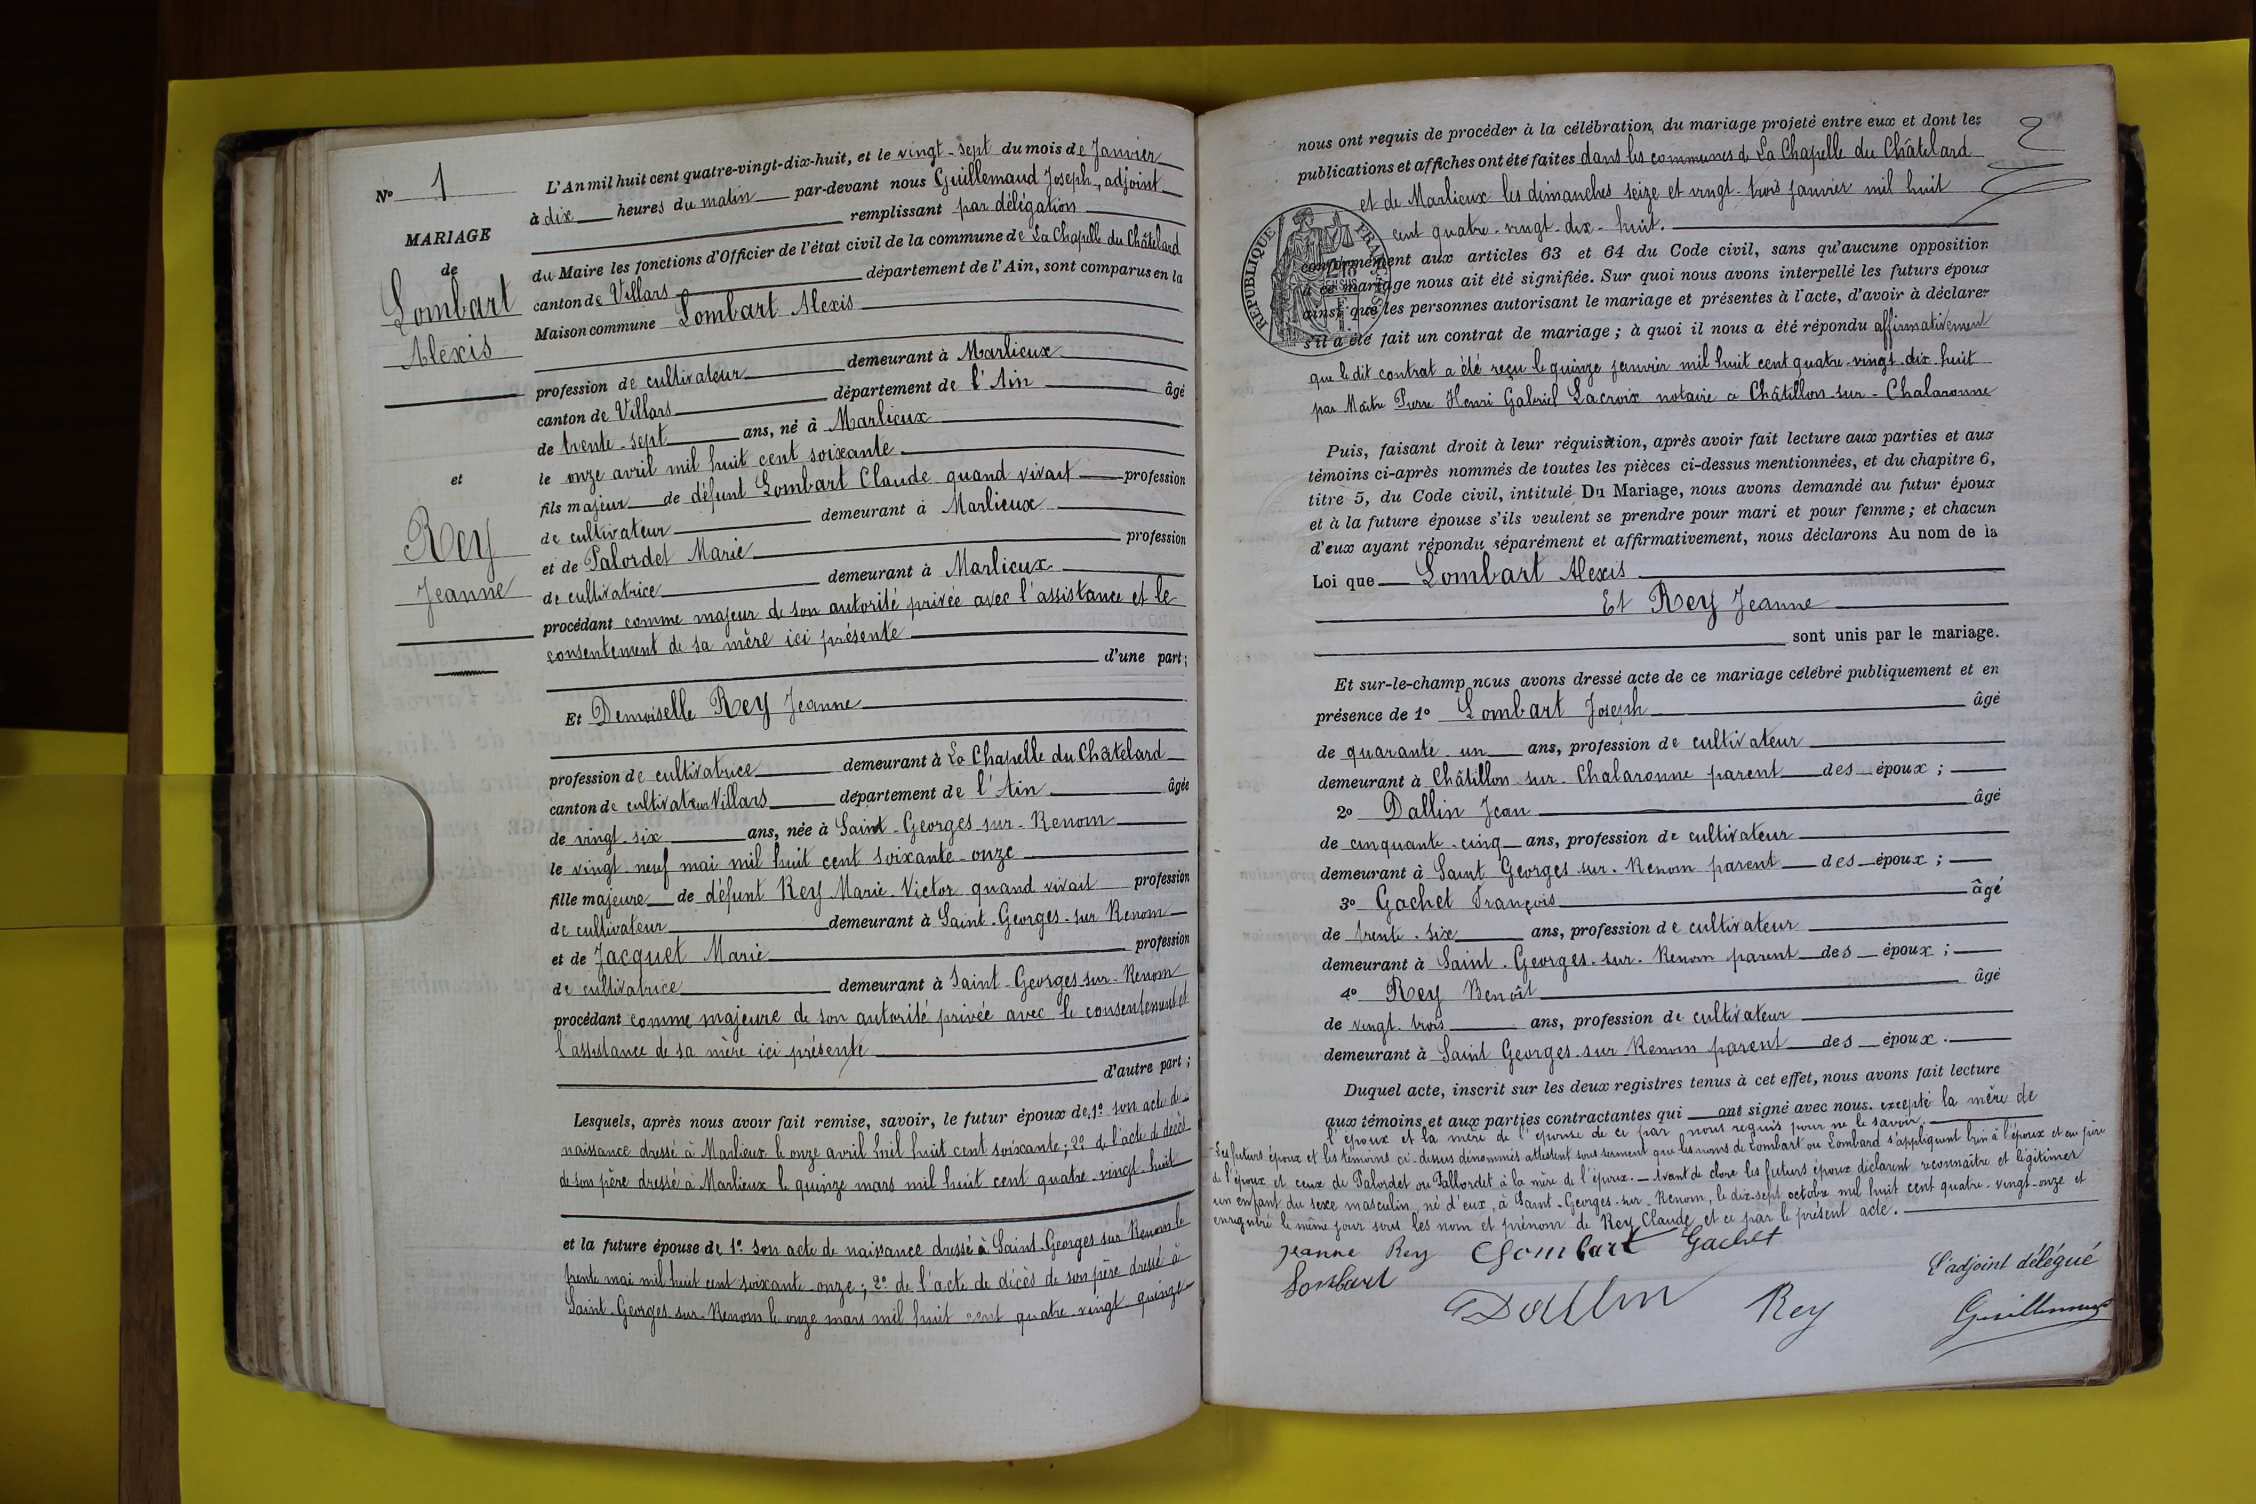 N° 1
MARIAGE
de
Lombart
Alexis
et
Rey
Jeanne
L'An mil huit cent quatre-vingt-dix-huit, et le vingt-sept du mois de Janvier
à dix heures du matin par-devant nous Guillemaud Joseph, adjoint
remplissant par délégation
du Maire les fonctions d'Officier de l'état civil de la commune de La Chapelle du Châtelard
canton de Villars département de l'Ain, sont comparus en la
Maison commune Lombart Alexis
profession de cultivateur demeurant à Marlieux
canton de Villars département de l'Ain âgé
de trente-sept ans, né à Marlieux
le onze avril mil huit cent soixante
fils majeur de défunt Lombart Claude quand vivait profession
de cultivateur demeurant à Marlieux
et de Palordet Marie profession
de cultivatrice demeurant à Marlieux
procédant comme majeur de son autorité privée avec l'assistance et le
consentement de sa mère ici présente
d'une part;
Et Demoiselle Rey Jeanne
profession de cultivatrice demeurant à La Chapelle du Châtelard
canton de cultivateur Villars département de l'Ain âgée
de vingt-six ans, née à Saint-Georges-sur-Renom
le vingt-neuf mai mil huit cent soixante-onze
fille majeure de défunt Rey Marie-Victor quand vivait profession
de cultivateur demeurant à Saint-Georges-sur Renom
et de Jacquet Marie profession
de cultivatrice demeurant à Saint-Georges-sur-Renom
procédant comme majeure de son autorité privée avec le consentement et
l'assistance de sa mère ici présente
d'autre part;
Lesquels, après nous avoir fait remise, savoir, le futur époux de 1° son acte de
naissance dressé à Marlieux le onze avril mil huit cent soixante; 2° de l'acte de décès
de son père dressé à Marlieux le quinze mars mil huit cent quatre-vingt-huit
et la future épouse de 1° son acte de naissance dressé à Saint-Georges sur Renom le
trente mai mil huit cent soixante onze; 2° de l'acte de décès de son père dressé à
Saint-Georges-sur-Renom le onze mars mil huit cent quatre-vingt-quinze
2
nous ont requis de procéder à la célébration du mariage projeté entre eux et dont les
publications et affiches ont été faites dans les communes de La Chapelle du Châtelard
et de Marlieux les dimanches seize et vingt-trois janvier mil huit
cent quatre-vingt-dix-huit.
REPUBLIQUE FRANÇAISE
conformément aux articles 63 et 64 du Code civil, sans qu'aucune opposition
à ce mariage nous ait été signifiée. Sur quoi nous avons interpellé les futurs époux
ainsi que les personnes autorisant le mariage et présentes à l'acte, d'avoir à déclarer
s'il a été fait un contrat de mariage; à quoi il nous a été répondu affirmativement
que le dit contrat a été reçu le quinze janvier mil huit cent quatre-vingt-dix-huit
par Maître Pierre Henri Gabriel Lacroix notaire à Châtillon-sur-Chalaronne
Puis, faisant droit à leur réquisition, après avoir fait lecture aux parties et aux
témoins ci-après nommés de toutes les pièces ci-dessus mentionnées, et du chapitre 6,
titre 5, du Code civil, intitulé Du Mariage, nous avons demandé au futur époux
et à la future épouse s'ils veulent se prendre pour mari et pour femme; et chacun
d'eux ayant répondu séparément et affirmativement, nous déclarons Au nom de la
Loi que Lombart Alexis
Et Rey Jeanne
sont unis par le mariage.
Et sur-le-champ nous avons dressé acte de ce mariage célébré publiquement et en
présence de 1° Lombart Joseph âgé
de quarante-un ans, profession de cultivateur
demeurant à Châtillon-sur-Chalaronne parent des époux;
2° Dallin Jean âgé
de cinquante-cinq ans, profession de cultivateur
demeurant à Saint Georges-sur-Renom parent des époux;
3° Gachet François âgé
de trente-six ans, profession de cultivateur
demeurant à Saint-Georges-sur-Renom parent des époux;
4° Rey Benoît âgé
de vingt-trois ans, profession de cultivateur
demeurant à Saint Georges-sur Renom parent des époux.
Duquel acte, inscrit sur les deux registres tenus à cet effet, nous avons fait lecture
aux témoins et aux parties contractantes qui ont signé avec nous. excepté la mère de
l'époux et la mère de l'épouse de ce par nous requis pour ne le savoir.
Les futurs époux et les témoins ci-dessus dénommés attestent sous serment que les noms de Lombart ou Lombard s'appliquent bien à l'époux et au père
de l'époux et ceux de Palordet ou Pallordet à la mère de l'époux. Avant de clore les futurs époux déclarent reconnaître et légitimer
un enfant du sexe masculin, né d'eux, à Saint-Georges-sur-Renom, le dix-sept octobre mil huit cent quatre-vingt-onze et
enregistré le même jour sous les nom et prénom de Rey Claude et ce par le présent acte.
Jeanne Rey Lombart Gachet
Lombart Dallin Rey
L'adjoint délégué
Guillemaud